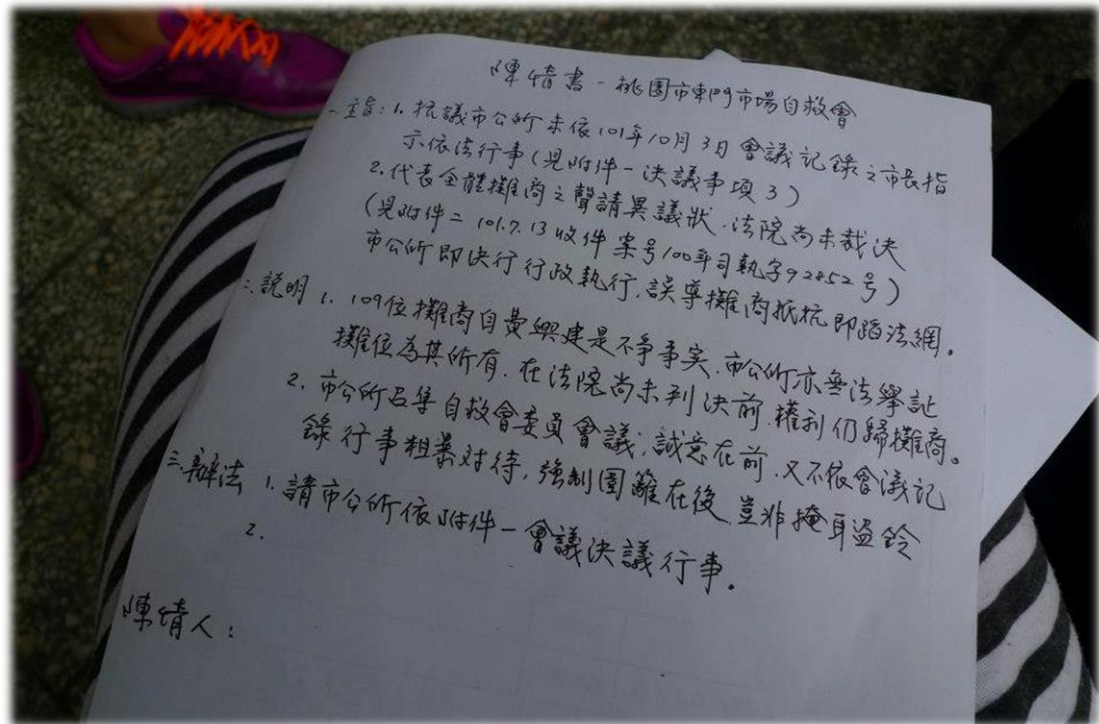 陳情書-桃園市東門市場自救會
一.主旨:1.抗議市公所未依101年10月3日會議記錄之市長指
示依法行事(見附件一決議事項3)
2.代表全體攤商之聲請異議狀.法院尚未裁決
(見附件二101.7.13收件案号100年司執字92852号)
市公所即決行行政執行.誤導攤商抵抗即蹈法網。
二.說明1.109位攤商自費興建是不爭事实.市公所亦無法舉証
攤位為其所有.在法院尚未判決前.權利仍歸攤商。
2.市公所召集自救會委員會議.誠意在前.又不依會議記
錄行事粗暴对待,強制圍籬在後豈非掩耳盜鈴
三.辦法1.請市公所依附件一會議決議行事。
2.
陳情人: